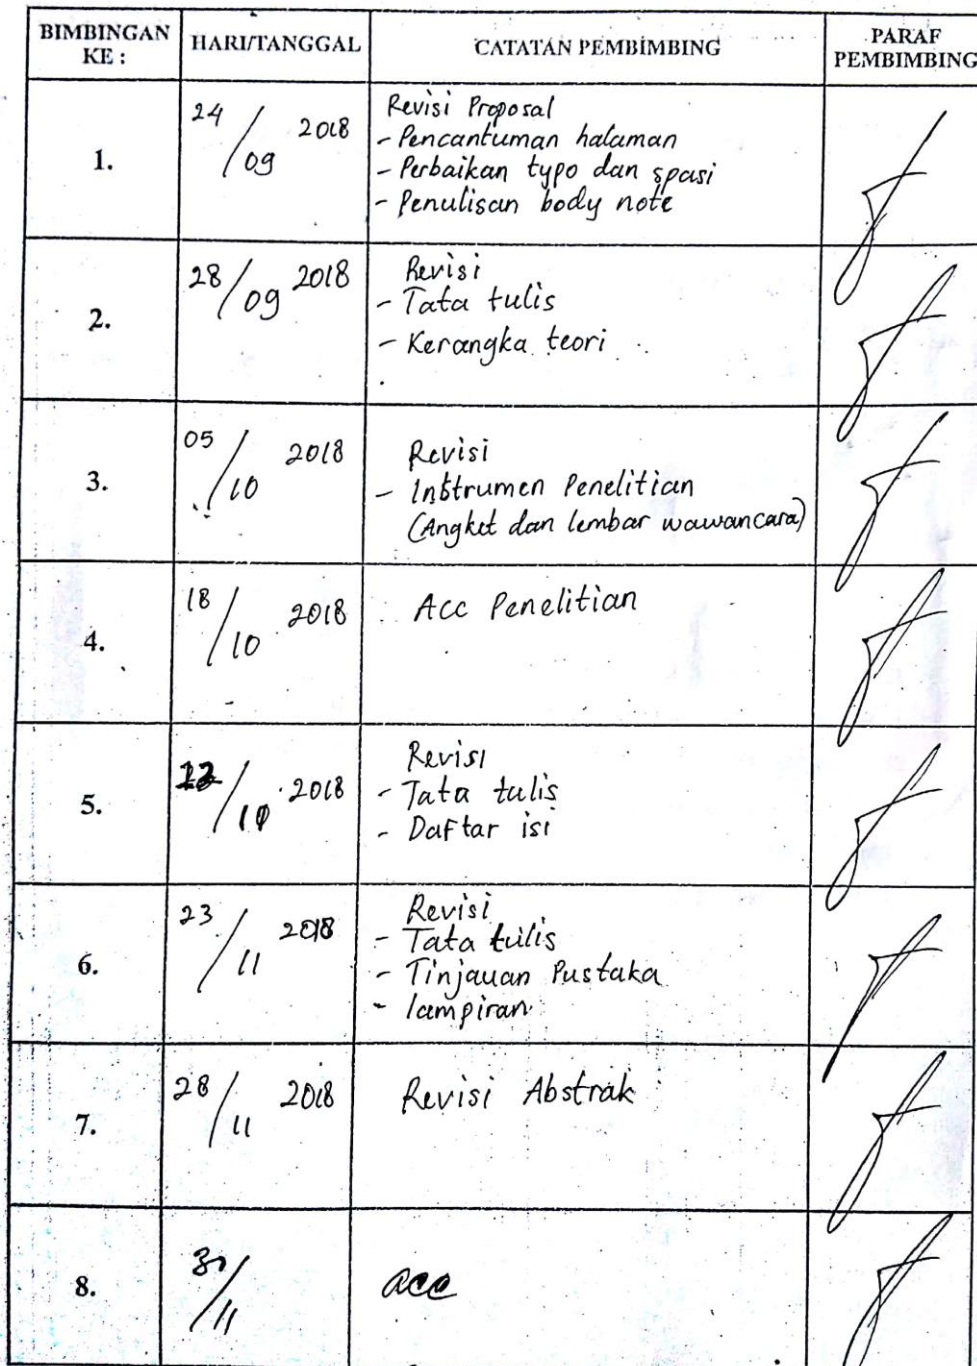 BIMBINGAN KE :
HARI/TANGGAL
CATATAN PEMBIMBING
PARAF PEMBIMBING
1.
24/09 2018
Revisi Proposal
- Pencantuman halaman
- Perbaikan typo dan spasi
- Penulisan body note
2.
28/09 2018
Revisi
- Tata tulis
- Kerangka teori
3.
05/10 2018
Revisi
- Instrumen Penelitian
(Angket dan lembar wawancara)
4.
18/10 2018
Acc Penelitian
5.
/10 2018
Revisi
- Tata tulis
- Daftar isi
6.
23/11 2018
Revisi
- Tata tulis
- Tinjauan Pustaka
- lampiran
7.
28/11 2018
Revisi Abstrak
8.
30/11
acc